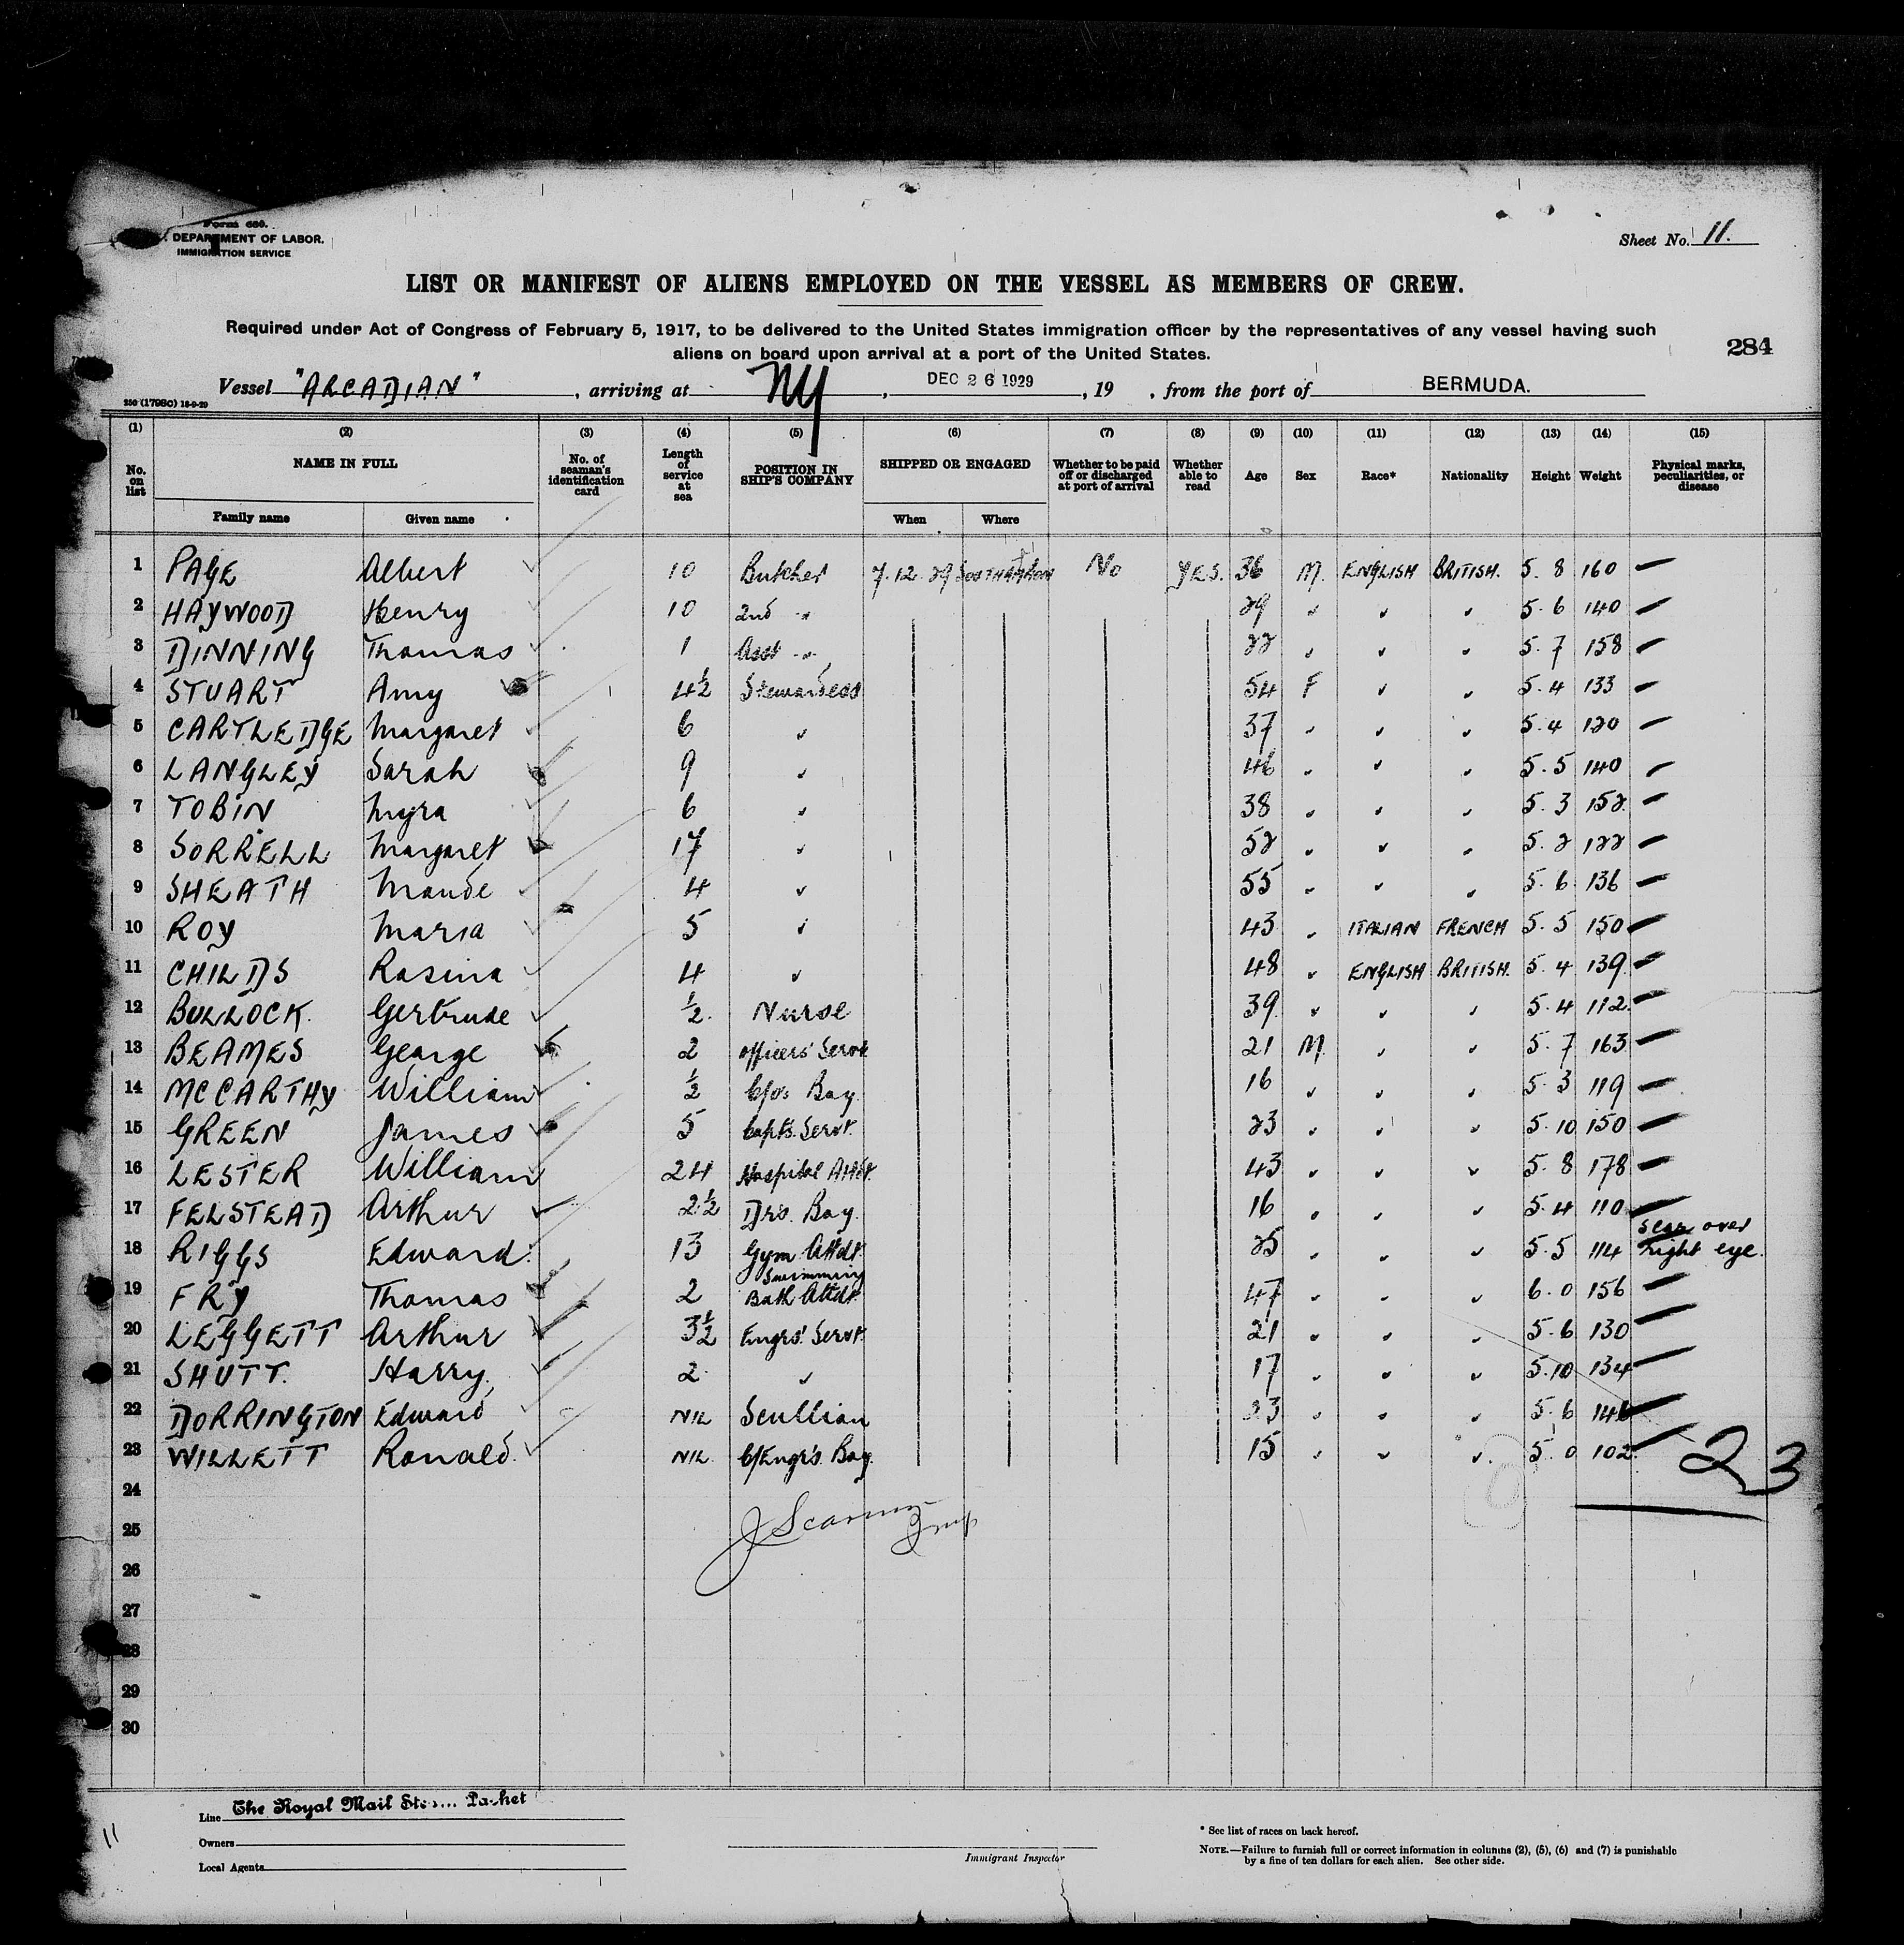 Form 680.
DEPARTMENT OF LABOR.
IMMIGRATION SERVICE
Sheet No. 11.
LIST OR MANIFEST OF ALIENS EMPLOYED ON THE VESSEL AS MEMBERS OF CREW.
Required under Act of Congress of February 5, 1917, to be delivered to the United States immigration officer by the representatives of any vessel having such
aliens on board upon arrival at a port of the United States.
284
Vessel "ARCADIAN", arriving at NY, DEC 26 1929, 19 , from the port of BERMUDA.
250 (1798C) 18-9-29
(1) (2) (3) (4) (5) (6) (7) (8) (9) (10) (11) (12) (13) (14) (15)
No. on list NAME IN FULL No. of seaman's identification card Length of service at sea POSITION IN SHIP'S COMPANY SHIPPED OR ENGAGED Whether to be paid off or discharged at port of arrival Whether able to read Age Sex Race* Nationality Height Weight Physical marks, peculiarities, or disease
Family name Given name When Where
1 PAGE Albert 10 Butcher 7.12.29 SOUTHAMPTON No YES. 36 M. ENGLISH BRITISH. 5. 8 160 —
2 HAYWOOD Henry 10 2nd " 29 " " " 5. 6 140 —
3 DINNING Thomas 1 Asst " 22 " " " 5. 7 158 —
4 STUART Amy 4½ Stewardess 54 F " " 5. 4 133 —
5 CARTLEDGE Margaret 6 " 37 " " " 5. 4 120 —
6 LANGLEY Sarah 9 " 46 " " " 5. 5 140 —
7 TOBIN Myra 6 " 38 " " " 5. 3 152 —
8 SORRELL Margaret 17 " 52 " " " 5. 2 122 —
9 SHEATH Maude 4 " 55 " " " 5. 6 136 —
10 ROY Maria 5 " 43 " ITALIAN FRENCH 5. 5 150 —
11 CHILDS Rosina 4 " 48 " ENGLISH BRITISH. 5. 4 139 —
12 BULLOCK. Gertrude ½ Nurse 39 " " " 5. 4 112 —
13 BEAMES George 2 Officers' Servt 21 M " " 5. 7 163 —
14 MCCARTHY William ½ C/o's Boy 16 " " " 5. 3 119 —
15 GREEN James 5 Capts. Servt. 23 " " " 5. 10 150 —
16 LESTER William 24 Hospital Attdt. 43 " " " 5. 8 178 —
17 FELSTEAD Arthur 2½ Drs. Boy. 16 " " " 5. 4 110 —
18 RIGGS Edward 13 Gym Attdt. 25 " " " 5. 5 114 Scar over right eye.
19 FRY Thomas 2 Swimming Bath Attdt. 47 " " " 6. 0 156 —
20 LEGGETT Arthur 3½ Engrs' Servt. 21 " " " 5. 6 130 —
21 SHUTT. Harry 2 " 17 " " " 5. 10 134 —
22 DORRINGTON Edward NIL Scullion 23 " " " 5. 6 146 —
23 WILLETT Ronald NIL C/Engr's Boy 15 " " " 5. 0 102 —
23
24
25
26
27
28
29
30
Line The Royal Mail Packet
Owners
Local Agents
11
Immigrant Inspector
* See list of races on back hereof.
NOTE.—Failure to furnish full or correct information in columns (2), (5), (6) and (7) is punishable
by a fine of ten dollars for each alien. See other side.